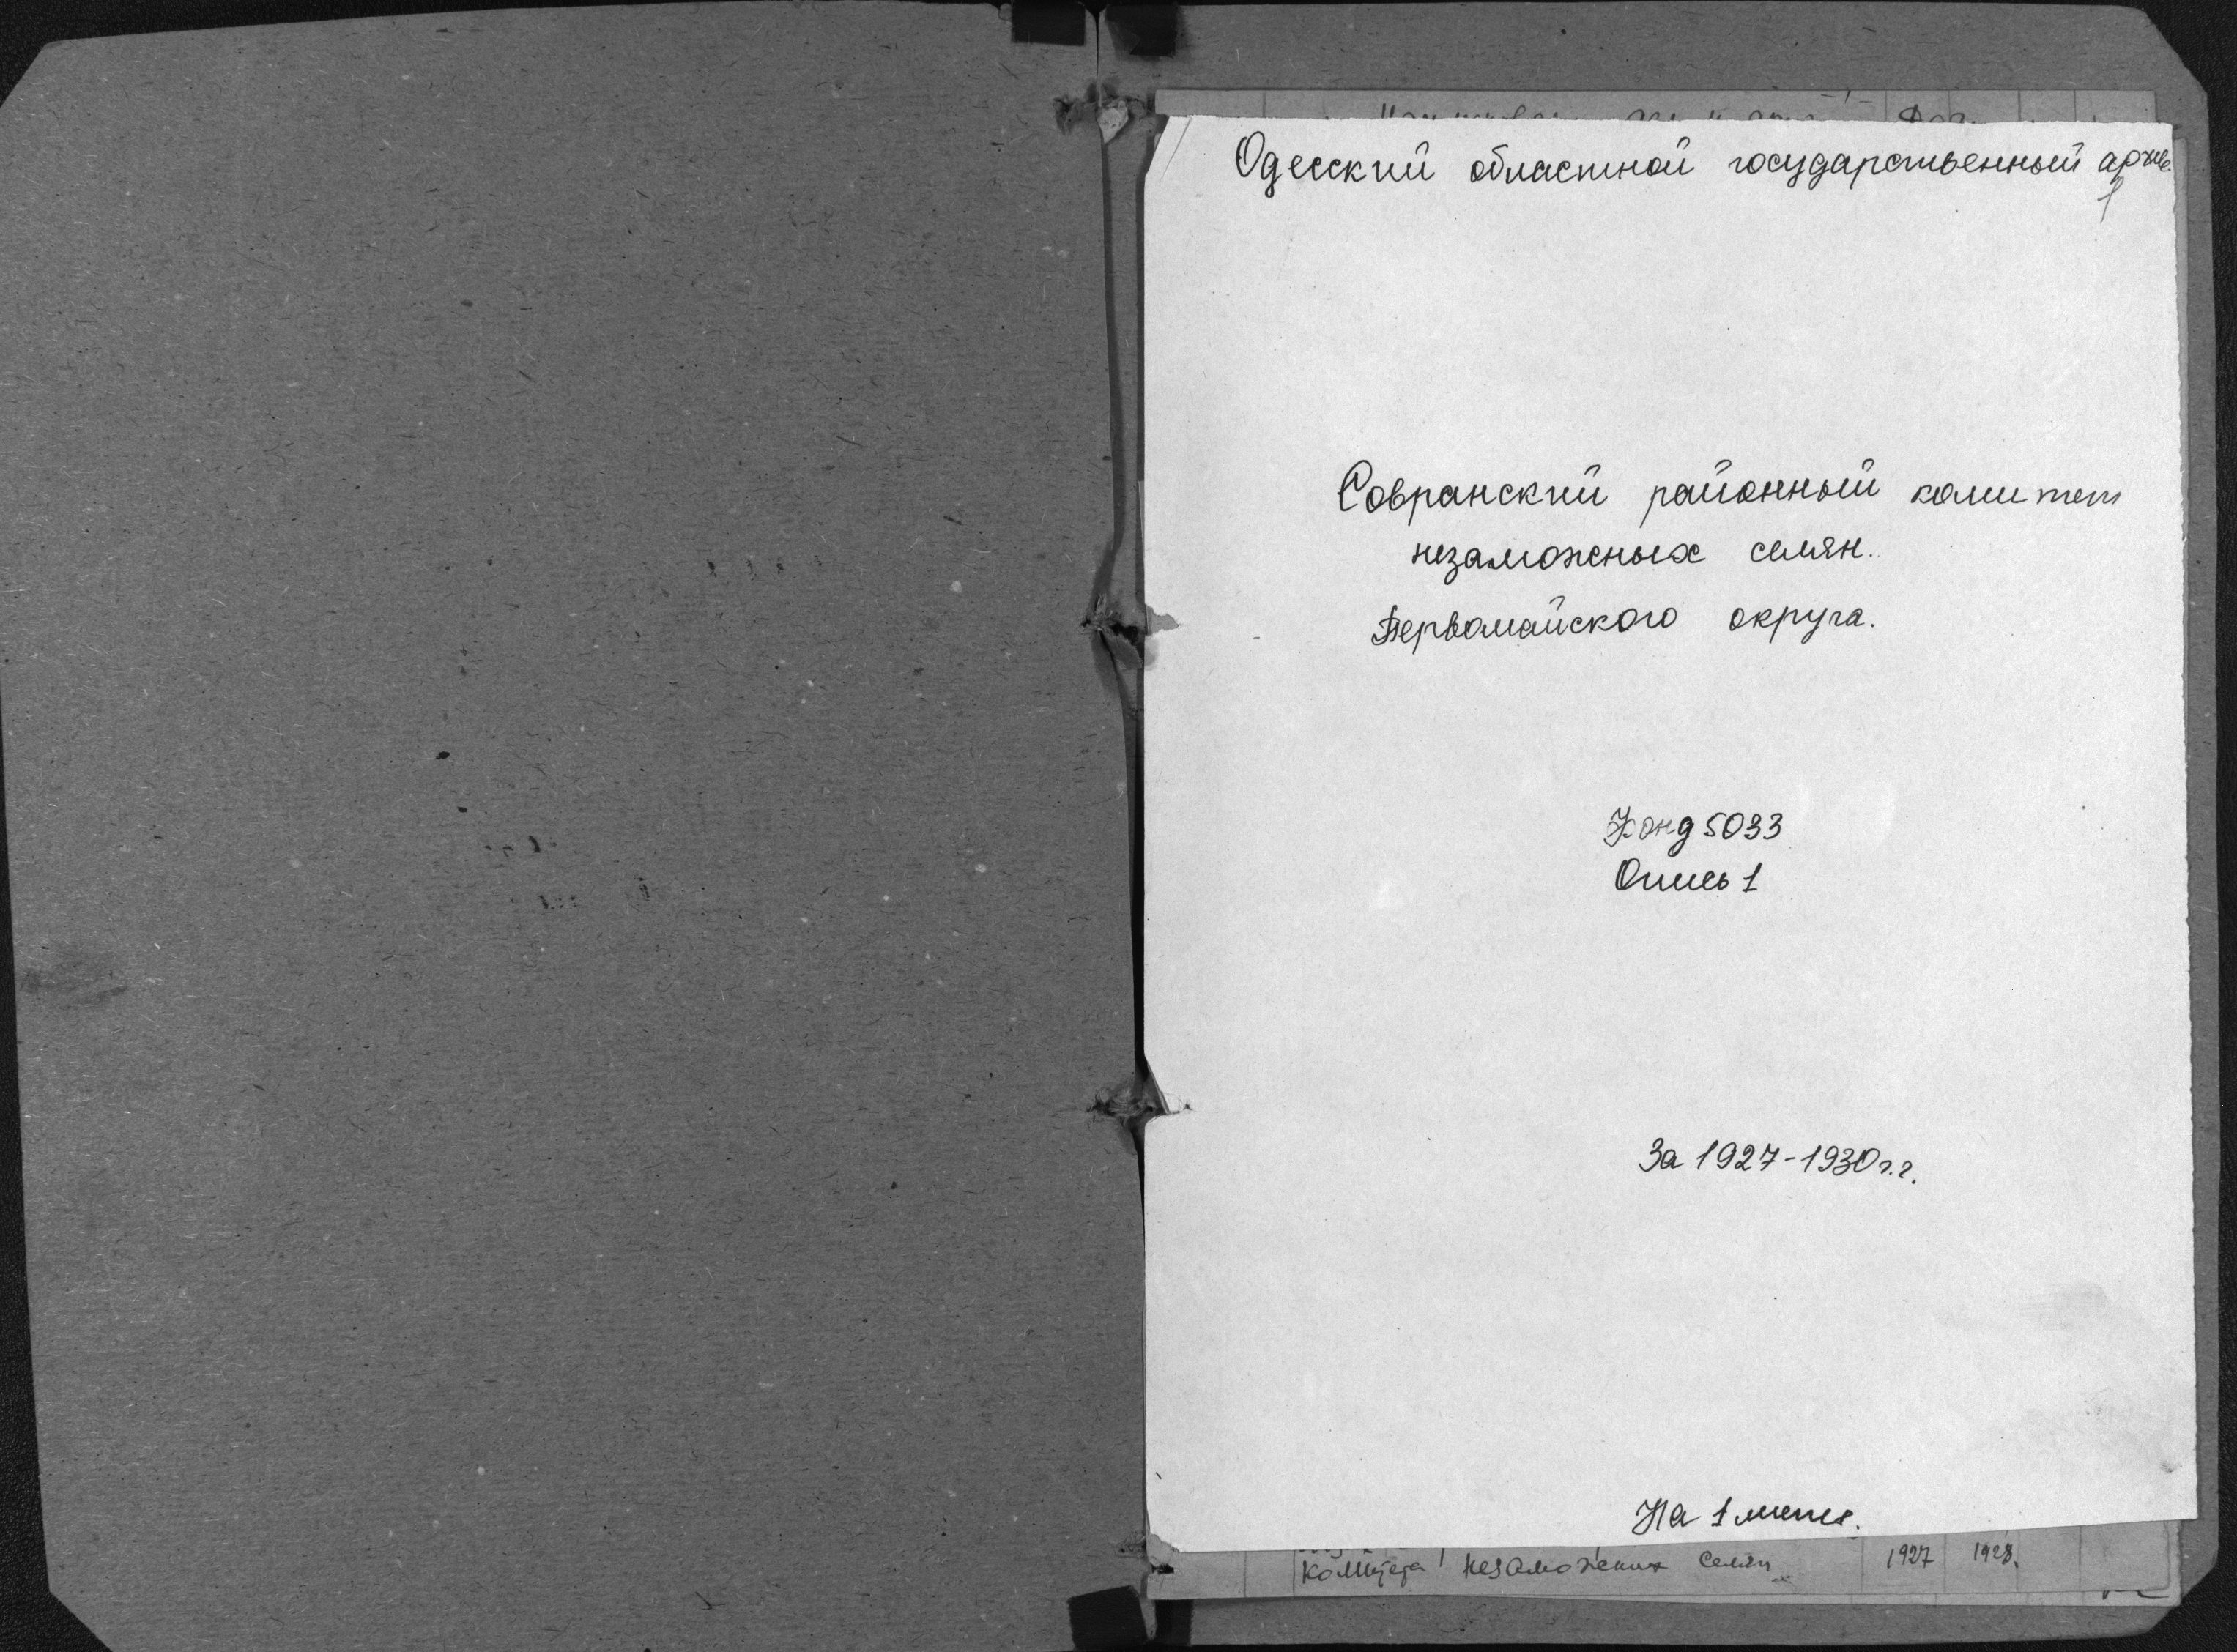 Одесский областной государственный архив
1
Совранский районный комитет
незаможных семян.
Первомайского округа.
Фонд 5033
Опись 1
За 1927-1930 г.г.
На 1 листе.
незаможних селян 1927 1928.